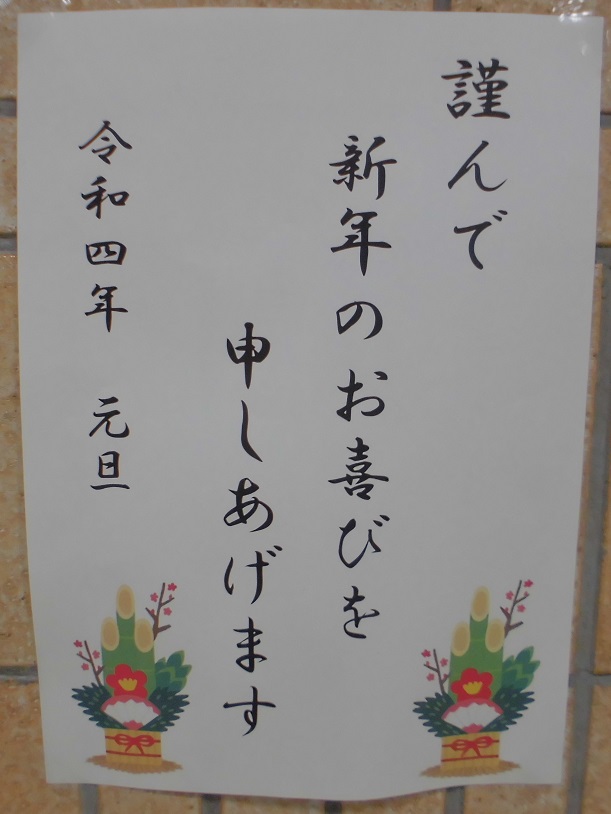 謹んで
新年のお喜びを
申しあげます
令和四年　元旦